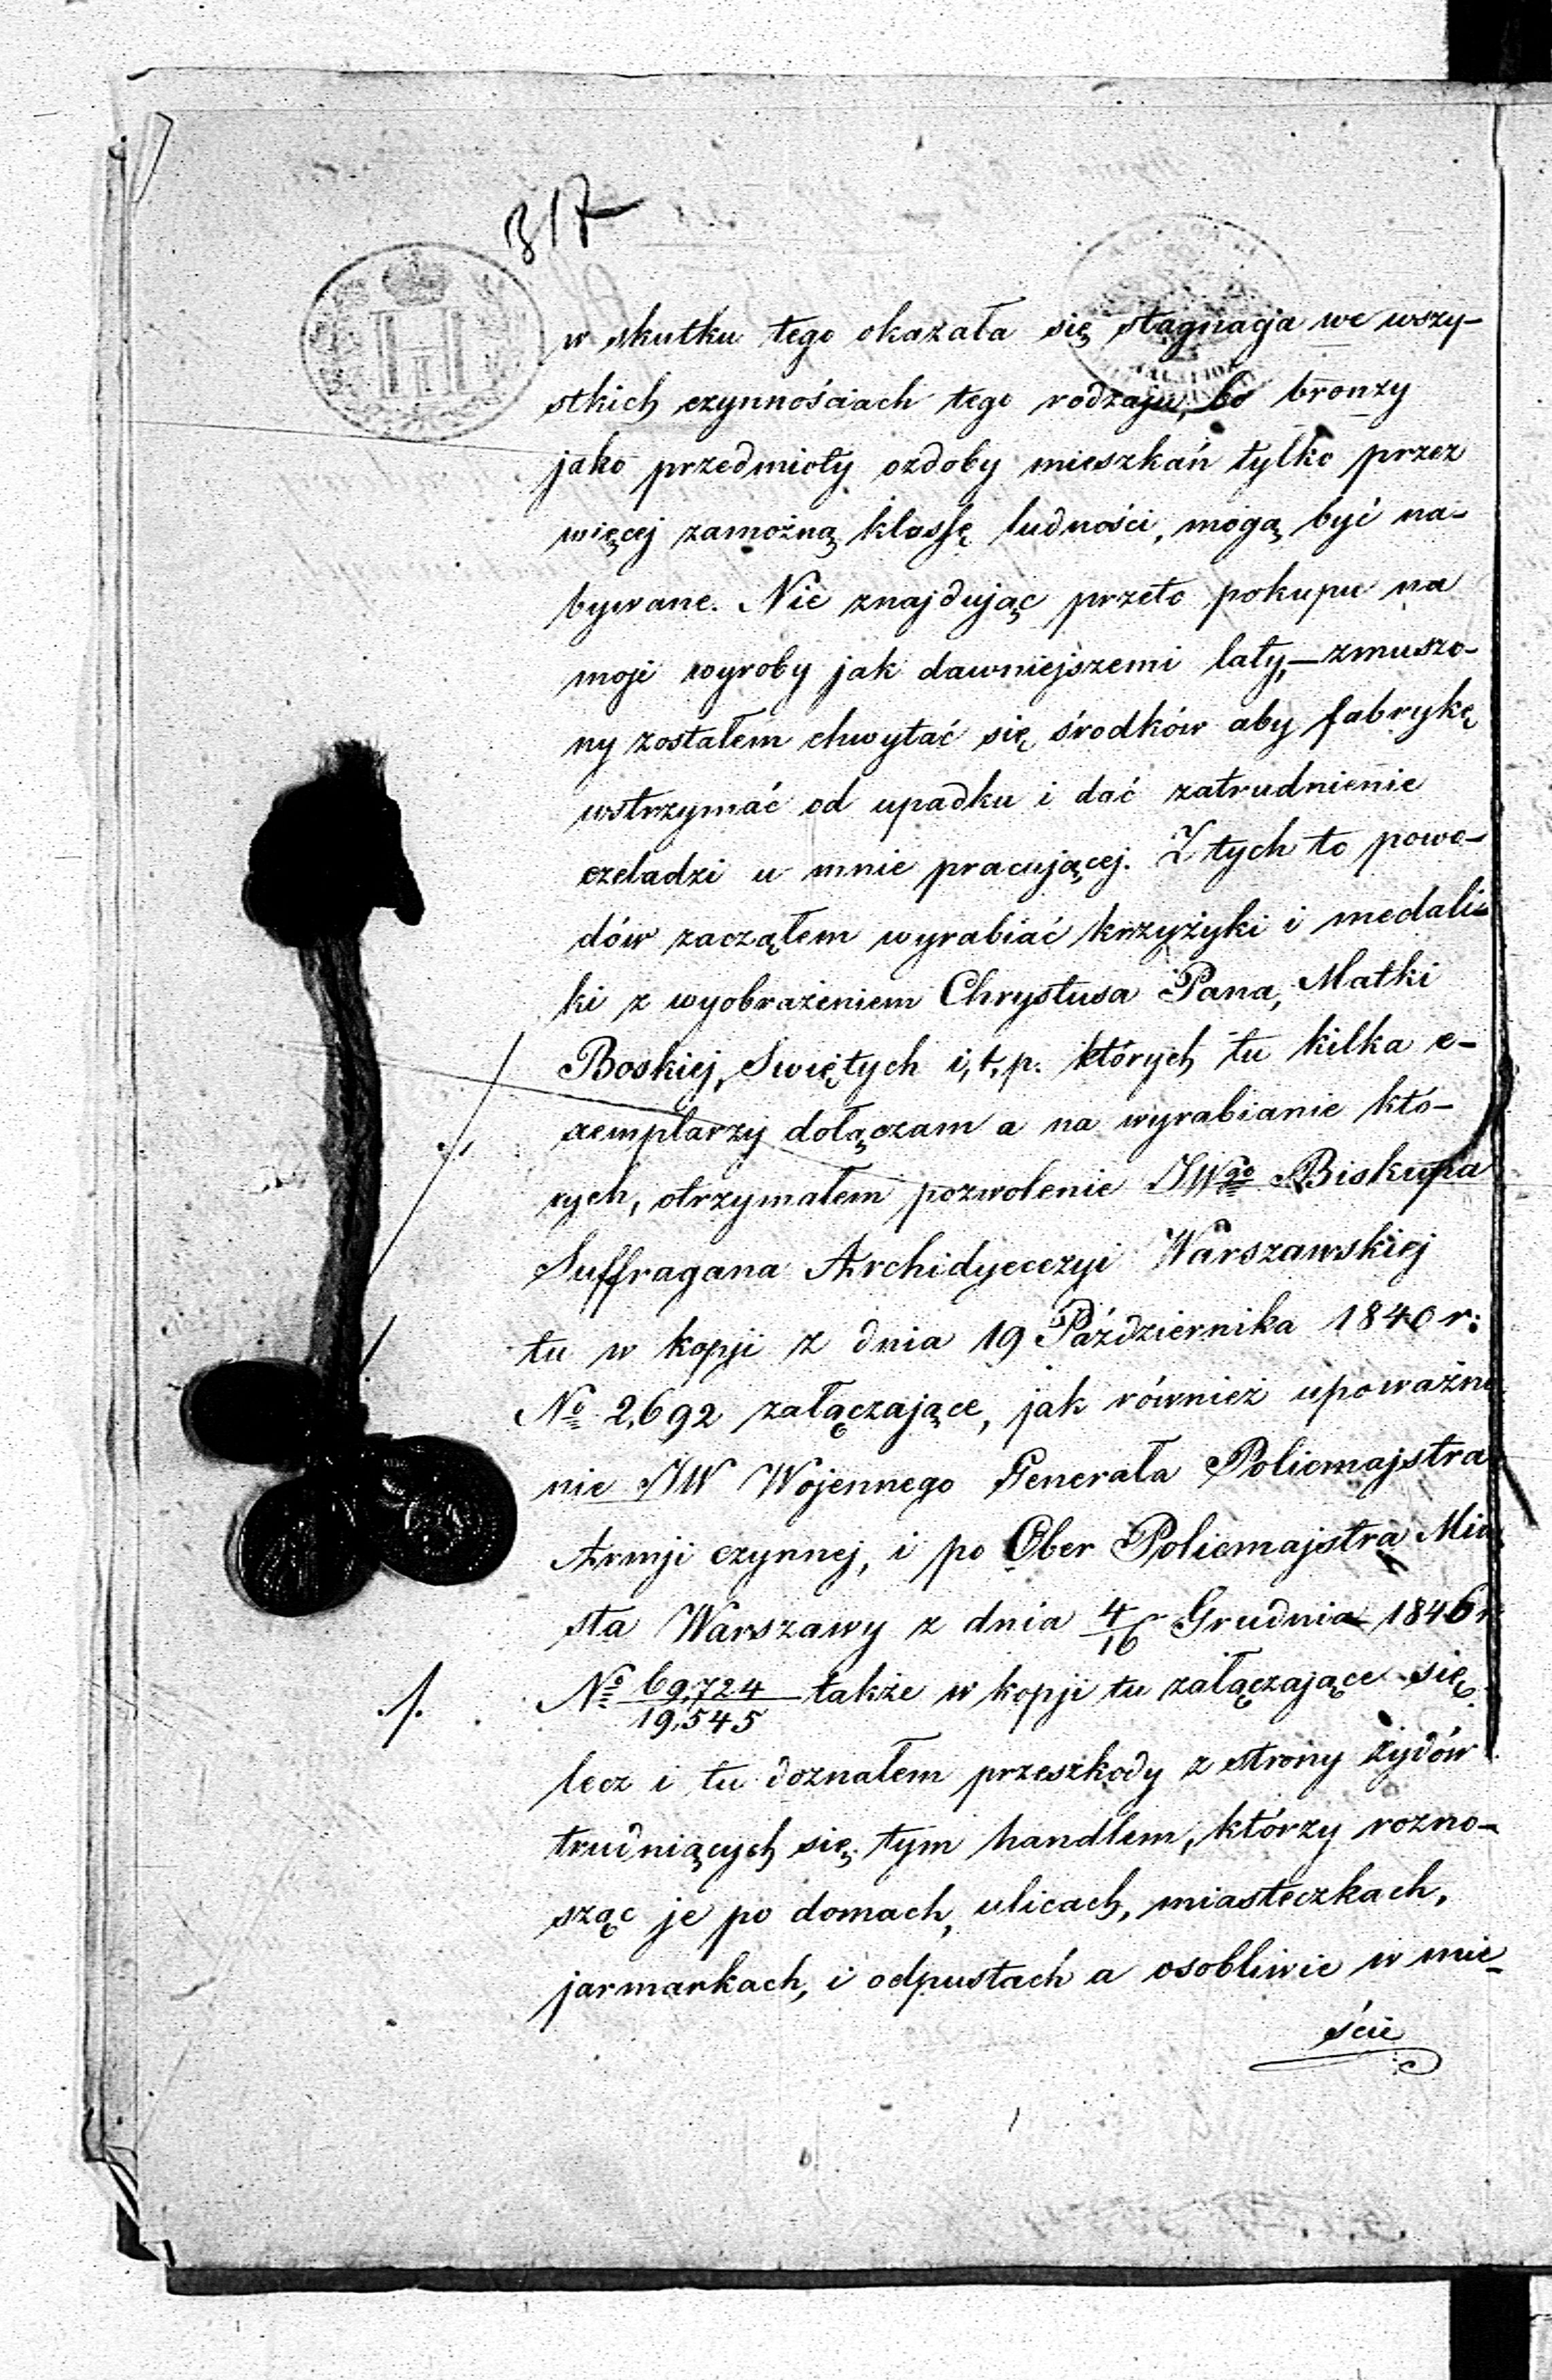 317
w skutku tego okazała się stagnacja we wszy-
stkich czynnościach tego rodzaju, bo bronzy
jako przedmioty ozdoby mieszkań tylko przez
więcej zamożną klassę ludności, mogą być na-
bywane. Nie znajdując przeto pokupu na
moje wyroby jak dawniejszemi laty,—zmuszo-
ny zostałem chwytać się środków aby fabrykę
wstrzymać od upadku i dać zatrudnienie
czeladzi u mnie pracującej. Z tych to powo-
dów zacząłem wyrabiać krzyżyki i medali-
ki z wyobrażeniem Chrystusa Pana, Matki
Boskiej, Swiętych i, t, p. których tu kilka e-
xemplarzy dołączam a na wyrabianie któ-
rych, otrzymałem pozwolenie JWgo Biskupa
Suffragana Archidyecezyi Warszawskiej
tu w kopji z dnia 19 Października 1840 r:
No 2,692 załączające, jak również upoważni
nie JW Wojennego Generała Policmajstra
Armji czynnej, i po Ober Policmajstra Mia
sta Warszawy z dnia 4/16 Grudnia 1846 r
./. No 69,724/19,545 także w kopji tu załączające się
lecz i tu doznałem przeszkody z strony żydów
trudniących się tym handlem, którzy rozno-
sząc je po domach, ulicach, miasteczkach,
jarmarkach, i odpustach a osobliwie w mie-
ście